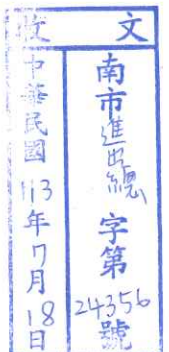 收文
南市進總字第24356號
中華民國113年7月18日